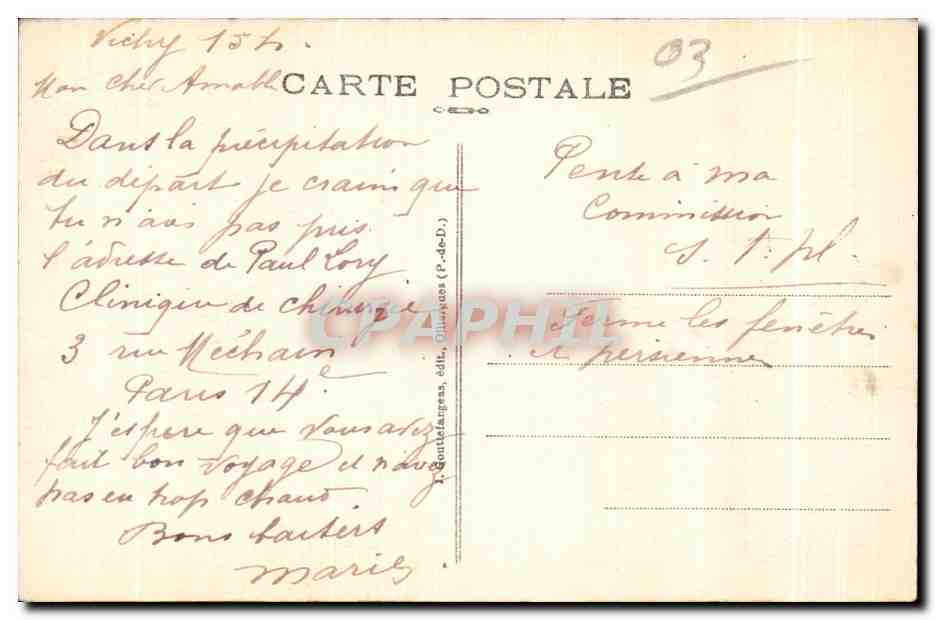 Vichy 15 h.
Mon cher Amable
CARTE POSTALE
03
Dans la précipitation
du départ je crains que
tu n'ais pas pris
l'adresse de Paul Lory
Clinique de chirurgie
3 rue Méchain
Paris 14e
J'espère que vous avez
fait bon voyage et n'avez
pas eu trop chaud.
Bons baisers
Marie
édit., Olliergues (P.-de-D.)
Pense à ma
Commission
S. t. pl.
Ferme les fenêtres
et persiennes
CPAPHIL